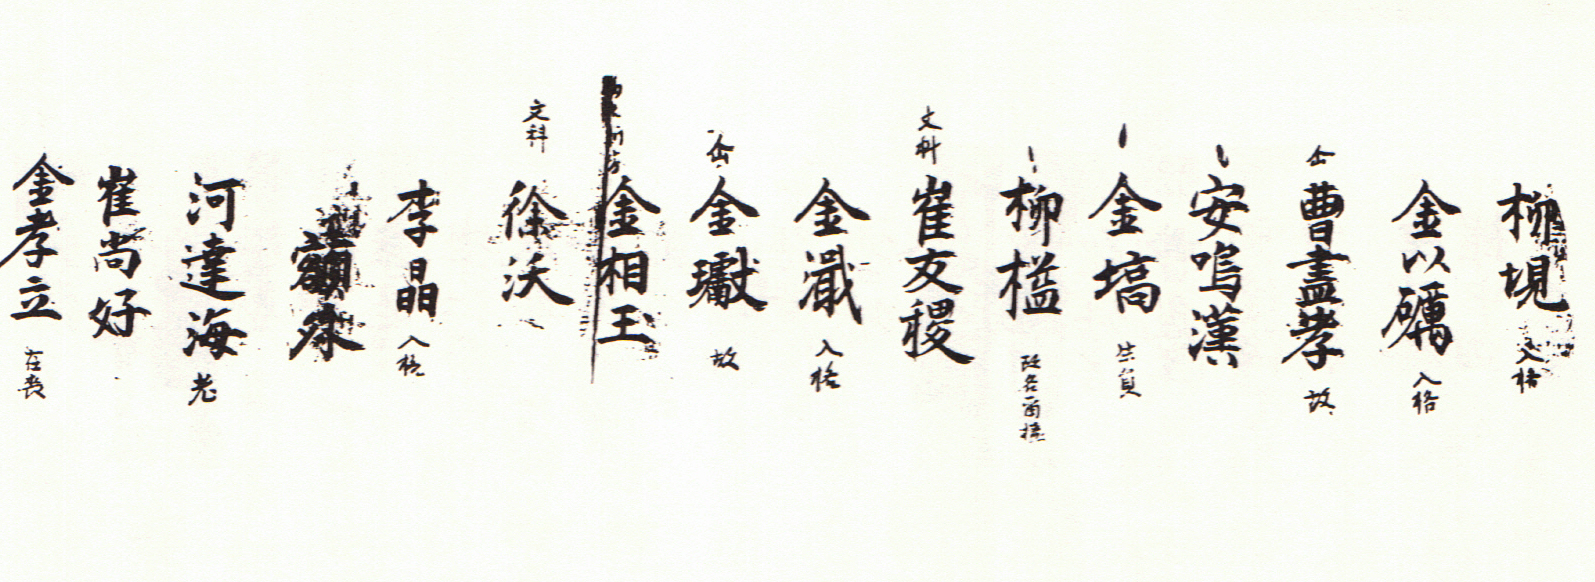 柳埧 入格
金以礪 入格
仚 曹盡孝 故
安鳴漢
金塙 生員
柳榏 改名
文科 崔友稷
金濈 入格
仚 金瓛 故
金相玉
文科 徐沃
李晶 入格
河達海 老
崔尚好
金孝立 在喪